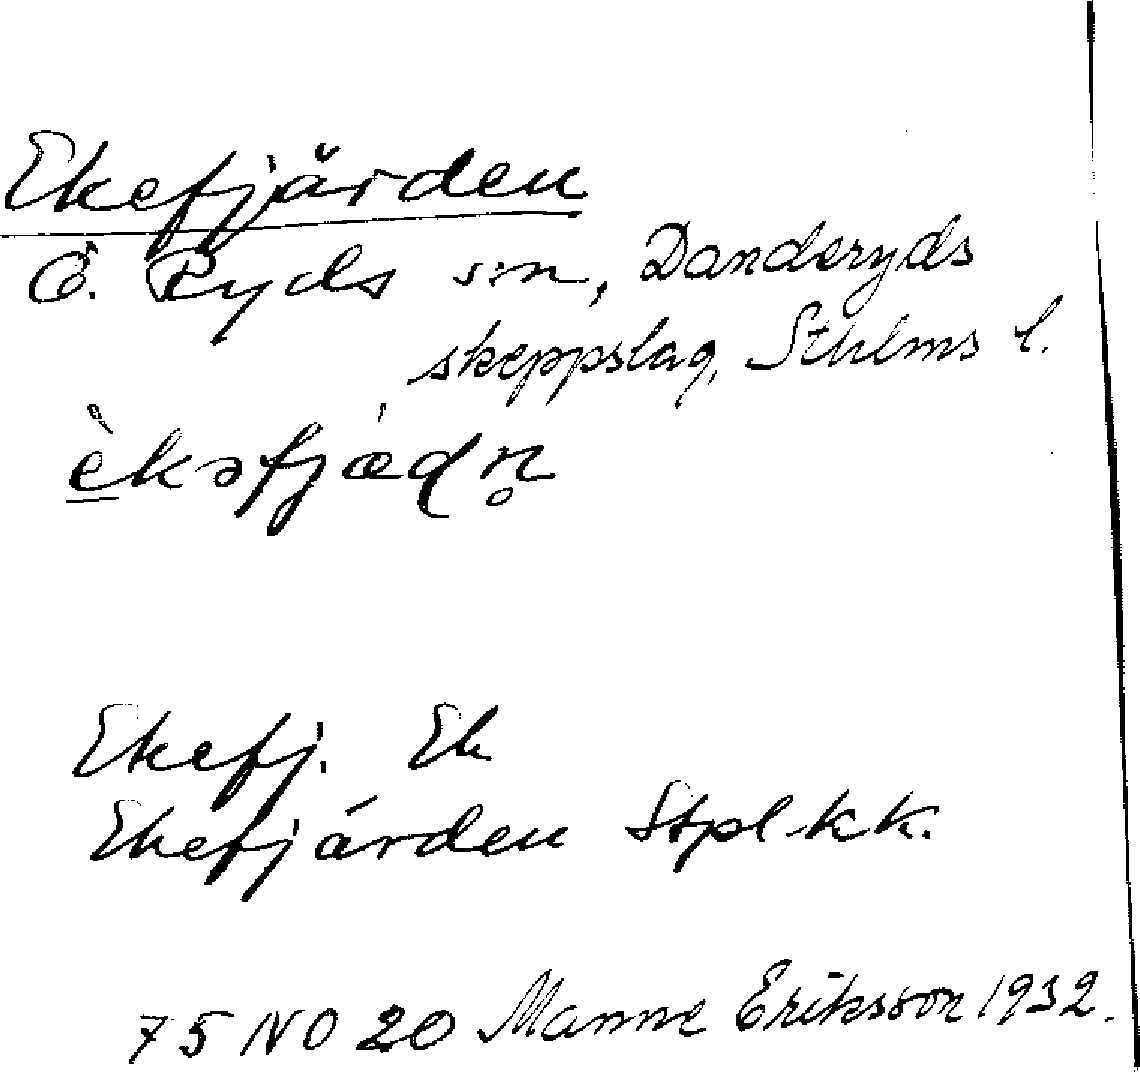 Ekefjärden
Ö. Ryds s:n, Danderyds
skeppslag, Sthlms l.
è̱kəfjæ̀dn̥
Ekefj. Ek
Ekefjärden Stpl-kk.
75 NO 20 Manne Eriksson 1932.